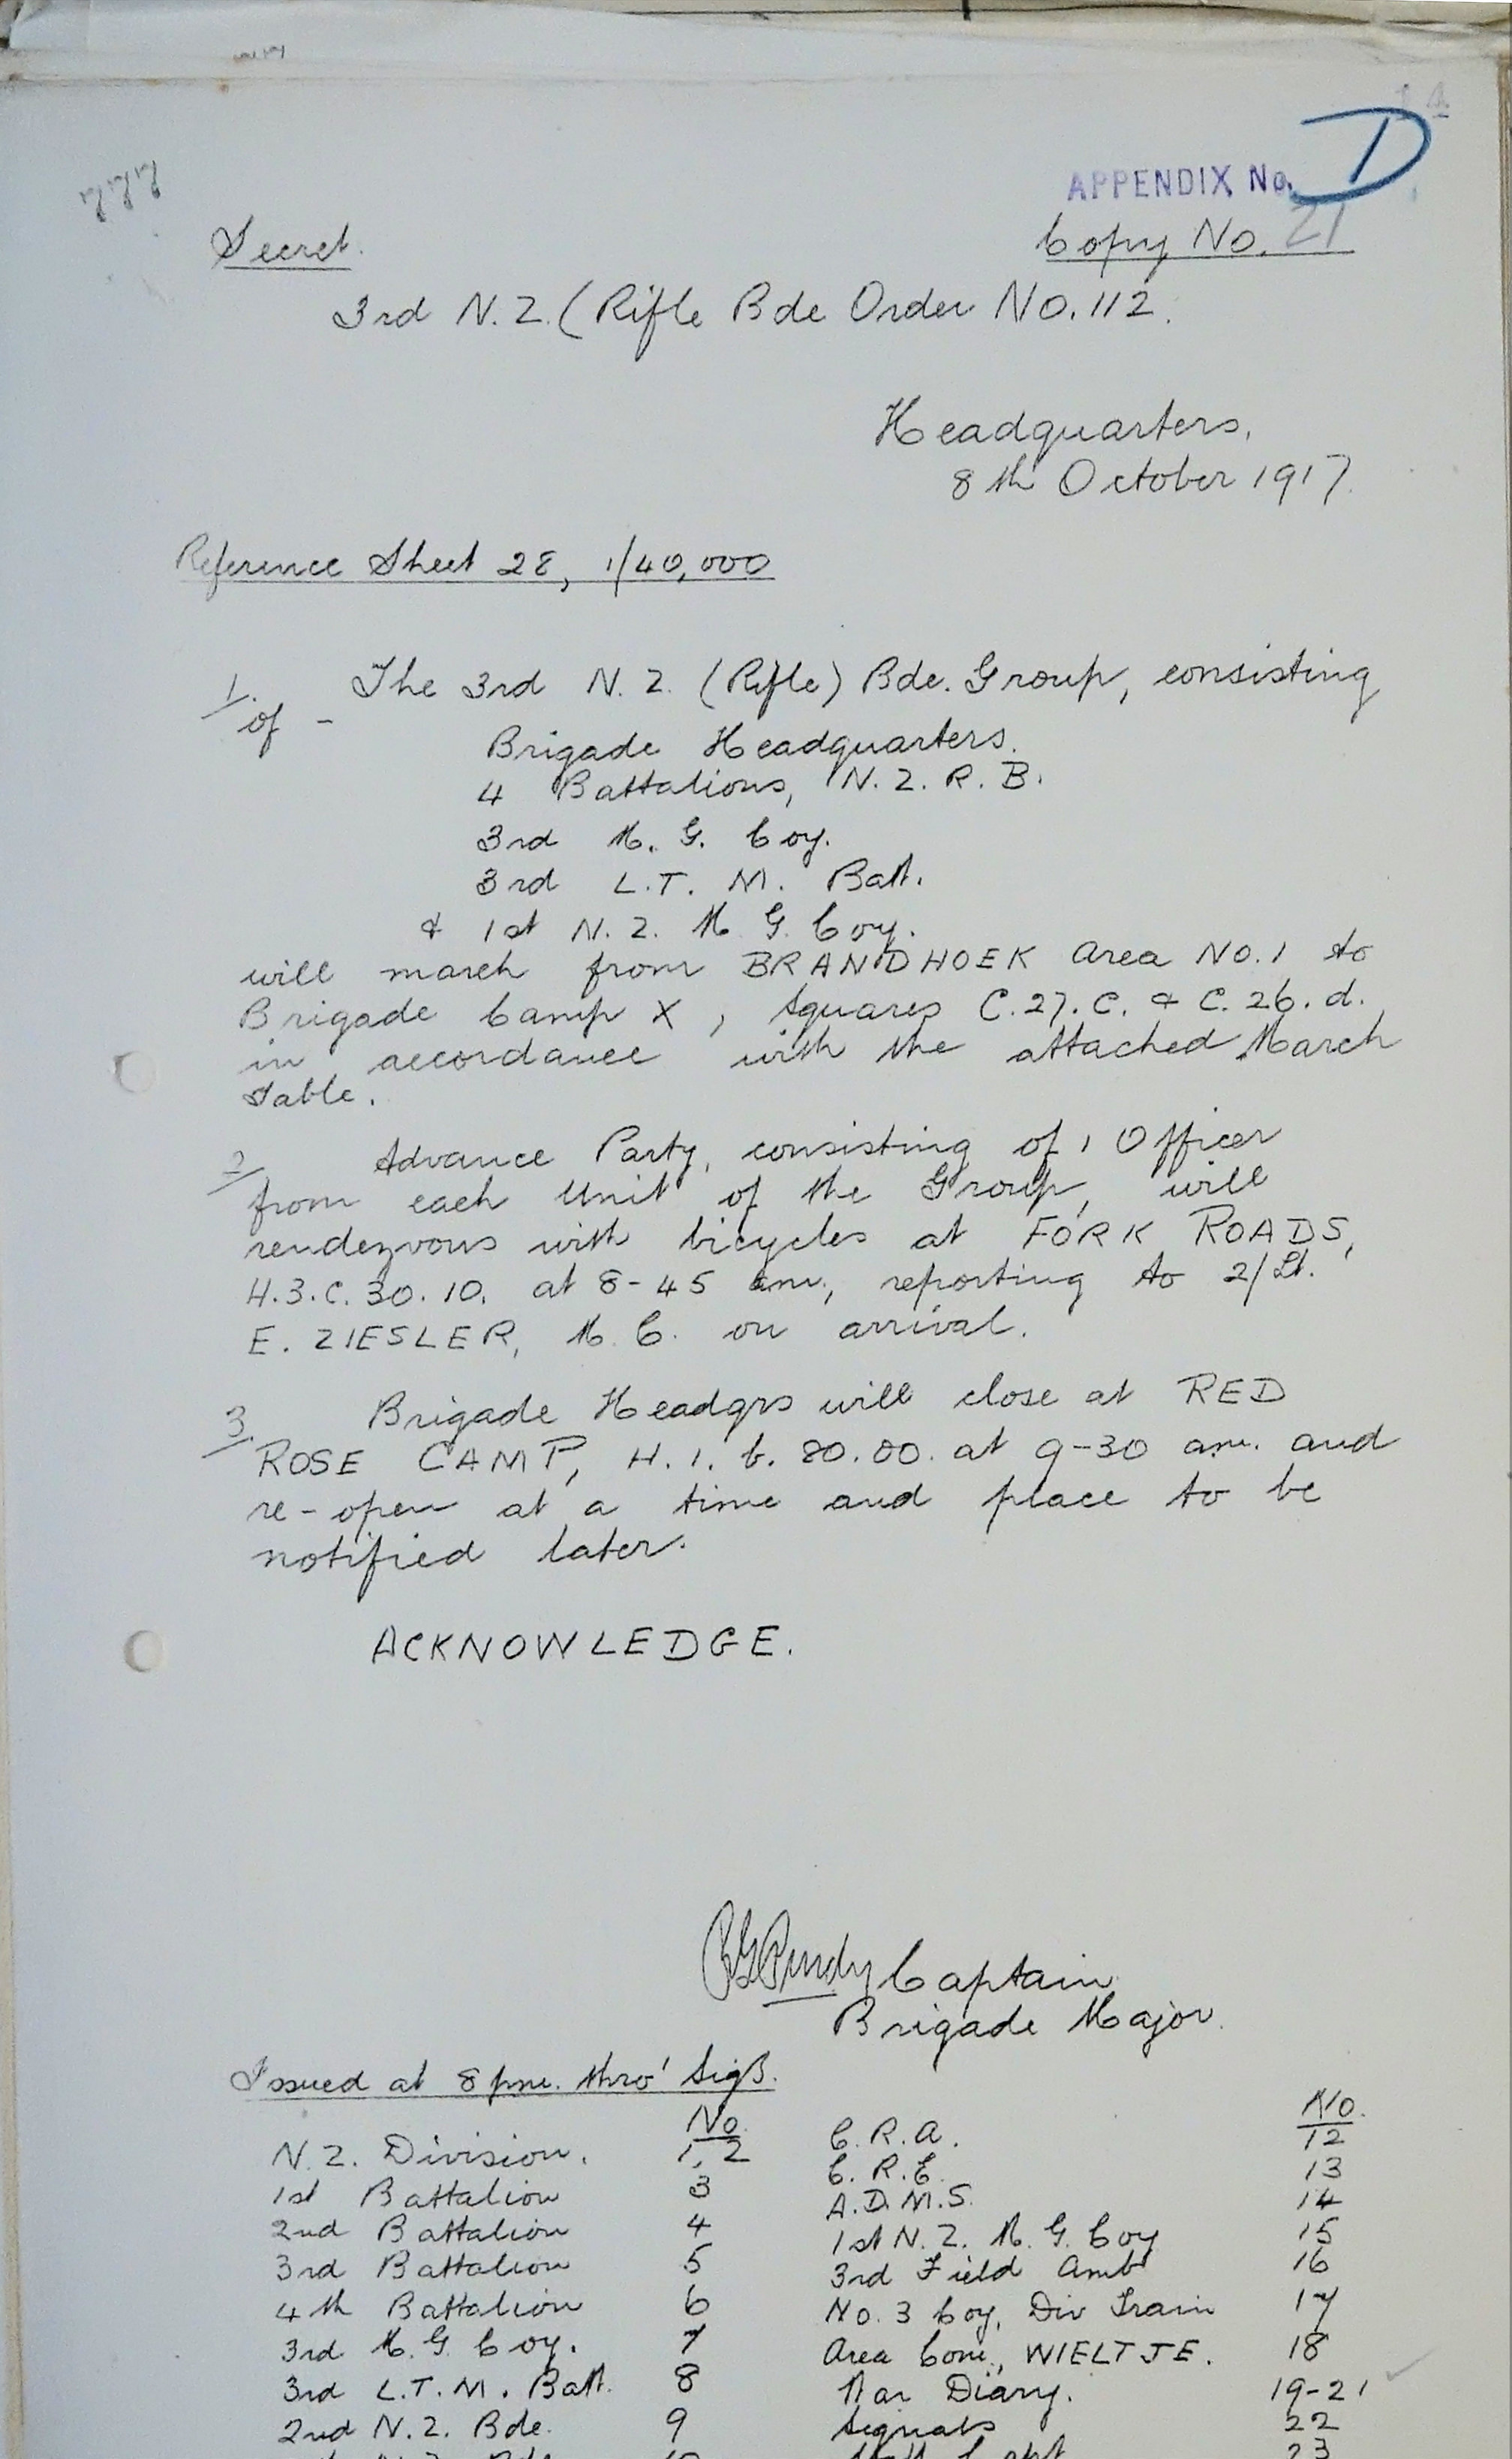 APPENDIX No. D
Secret. Copy No. 21
3rd N.Z. (Rifle Bde Order No. 112.
Headquarters,
8th October 1917.
Reference Sheet 28, 1/40,000
1. The 3rd N.Z. (Rifle) Bde. Group, consisting
of -
Brigade Headquarters.
4 Battalions, N.Z.R.B.
3rd M.G. Coy.
3rd L.T.M. Batt.
& 1st N.Z. M G Coy.
will march from BRANDHOEK Area No. 1 to
Brigade Camp X, Squares C.27.C. & C.26.d.
in accordance with the attached March
table.
2/ Advance Party, consisting of 1 Officer
from each Unit of the Group, will
rendezvous with bicycles at FORK ROADS,
H.3.C.30.10. at 8-45 am., reporting to 2/Lt.
E. ZIESLER, M.C. on arrival.
3. Brigade Headqrs will close at RED
ROSE CAMP, H.1.b.80.00. at 9-30 am. and
re-open at a time and place to be
notified later.
ACKNOWLEDGE.
Captain
Brigade Major.
Issued at 8 pm. thro' Sigs.
No. No.
N.Z. Division. 1, 2 C.R.A. 12
1st Battalion 3 C.R.E. 13
2nd Battalion 4 A.D.M.S. 14
3rd Battalion 5 1st N.Z. M.G. Coy 15
4th Battalion 6 3rd Field Amb 16
3rd M.G. Coy. 7 No. 3 Coy, Div Train 17
3rd L.T.M. Batt. 8 Area Com., WIELTJE. 18
2nd N.Z. Bde. 9 War Diary. 19-21
Signals 22
23